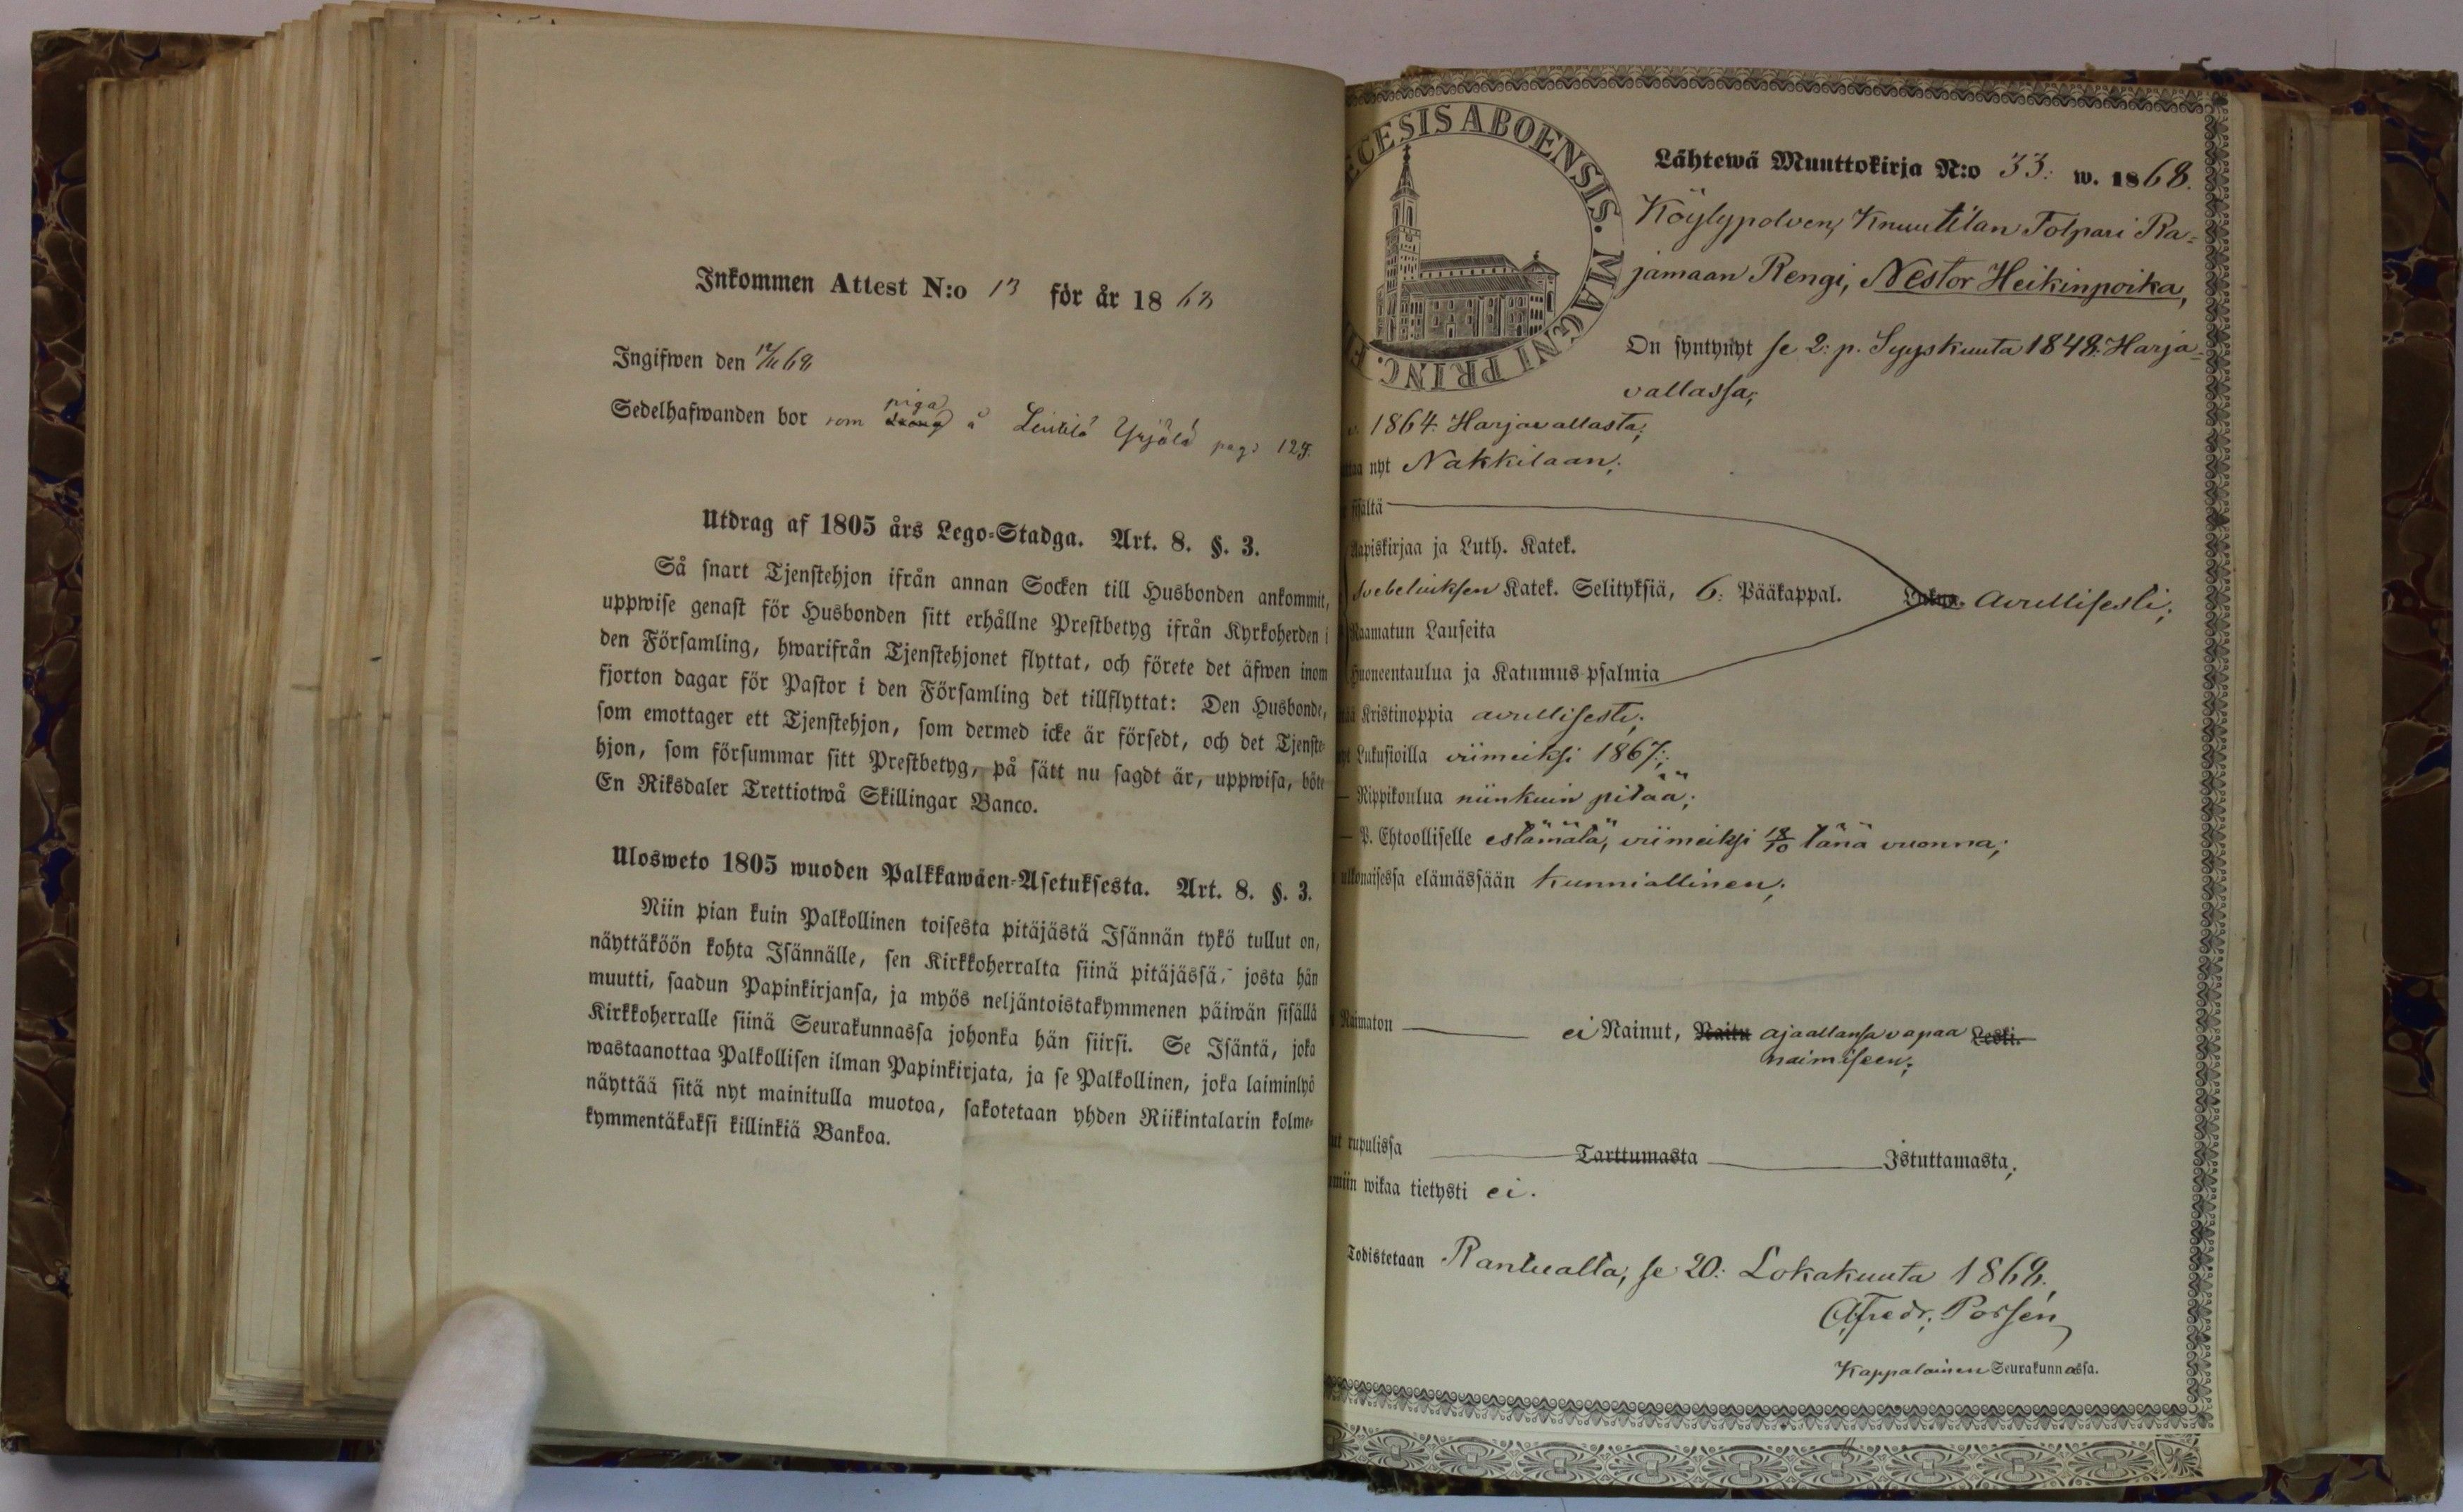 Inkommen Attest N:o 13 för år 1868
Ingifwen den 12/11 68
Sedelhafwanden bor som piga å Leistilä Yrjölä pag: 129.
Utdrag af 1805 års Lego-Stadga. Art. 8. §. 3.
Så snart Tjenstehjon ifrån annan Socken till Husbonden ankommit,
uppwise genast för Husbonden sitt erhållne Prestbetyg ifrån Kyrkoherden i
den Församling, hwarifrån Tjenstehjonet flyttat, och förete det äfwen inom
fjorton dagar för Pastor i den Församling det tillflyttat: Den Husbonde,
som emottager ett Tjenstehjon, som dermed icke är försedt, och det Tjenste-
hjon, som försummar sitt Prestbetyg, på sätt nu sagdt är, uppwisa, böte
En Riksdaler Trettiotwå Skillingar Banco.
Ulosweto 1805 wuoden Palkkawäen-Asetuksesta. Art. 8. §. 3.
Niin pian kuin Palkollinen toisesta pitäjästä Isännän tykö tullut on,
näyttäköön kohta Isännälle, sen Kirkkoherralta siinä pitäjässä, josta hän
muutti, saadun Papinkirjansa, ja myös neljäntoistakymmenen päiwän sisällä
Kirkkoherralle siinä Seurakunnassa johonka hän siirsi. Se Isäntä, joka
wastaanottaa Palkollisen ilman Papinkirjata, ja se Palkollinen, joka laiminlyö
näyttää sitä nyt mainitulla muotoa, sakotetaan yhden Riikintalarin kolme-
kymmentäkaksi killinkiä Bankoa.
ECESIS ABOENSIS. MAGNI PRINC. F
Lähtewä Muuttokirja N:o 33: w. 1868.
Köylypolven, Knuutilan Tolpari Ra-
jamaan Rengi, Nestor Heikinpoika,
On syntynyt se 2: p. Syyskuuta 1848: Harja-
vallassa;
1864: Harjavallasta;
nyt Nakkilaan;
sisältä
Aapiskirjaa ja Luth. Katek.
Svebeliuksen Katek. Selityksiä, 6: Pääkappal. Lukua. Avullisesti;
Raamatun Lauseita
Huoneentaulua ja Katumus-psalmia
Kristinoppia avullisesti;
Lukusioilla viimeiksi 1867;
— Rippikoulua niinkuin pitää;
— P. Ehtoolliselle estämätä, viimeiksi 18/10 tänä vuonna;
ulkonaisessa elämässään kunniallinen;
Naimaton ei Nainut, Naitu ajaallansa vapaa Leski.
naimiseen;
rupulissa Tarttumasta Istuttamasta;
wikaa tietysti ei.
Todistetaan Rantualla, se 20: Lokakuuta 1868.
A. Fredr. Porsén
Kappalainen Seurakunnassa.